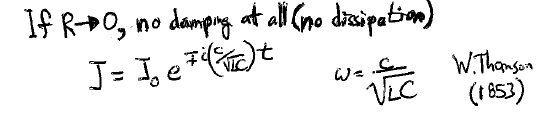 If R→0, no damping at all (no dissipation)
J = J₀ e^{∓i(c/√LC)t} ω = c/√LC W. Thomson (1853)